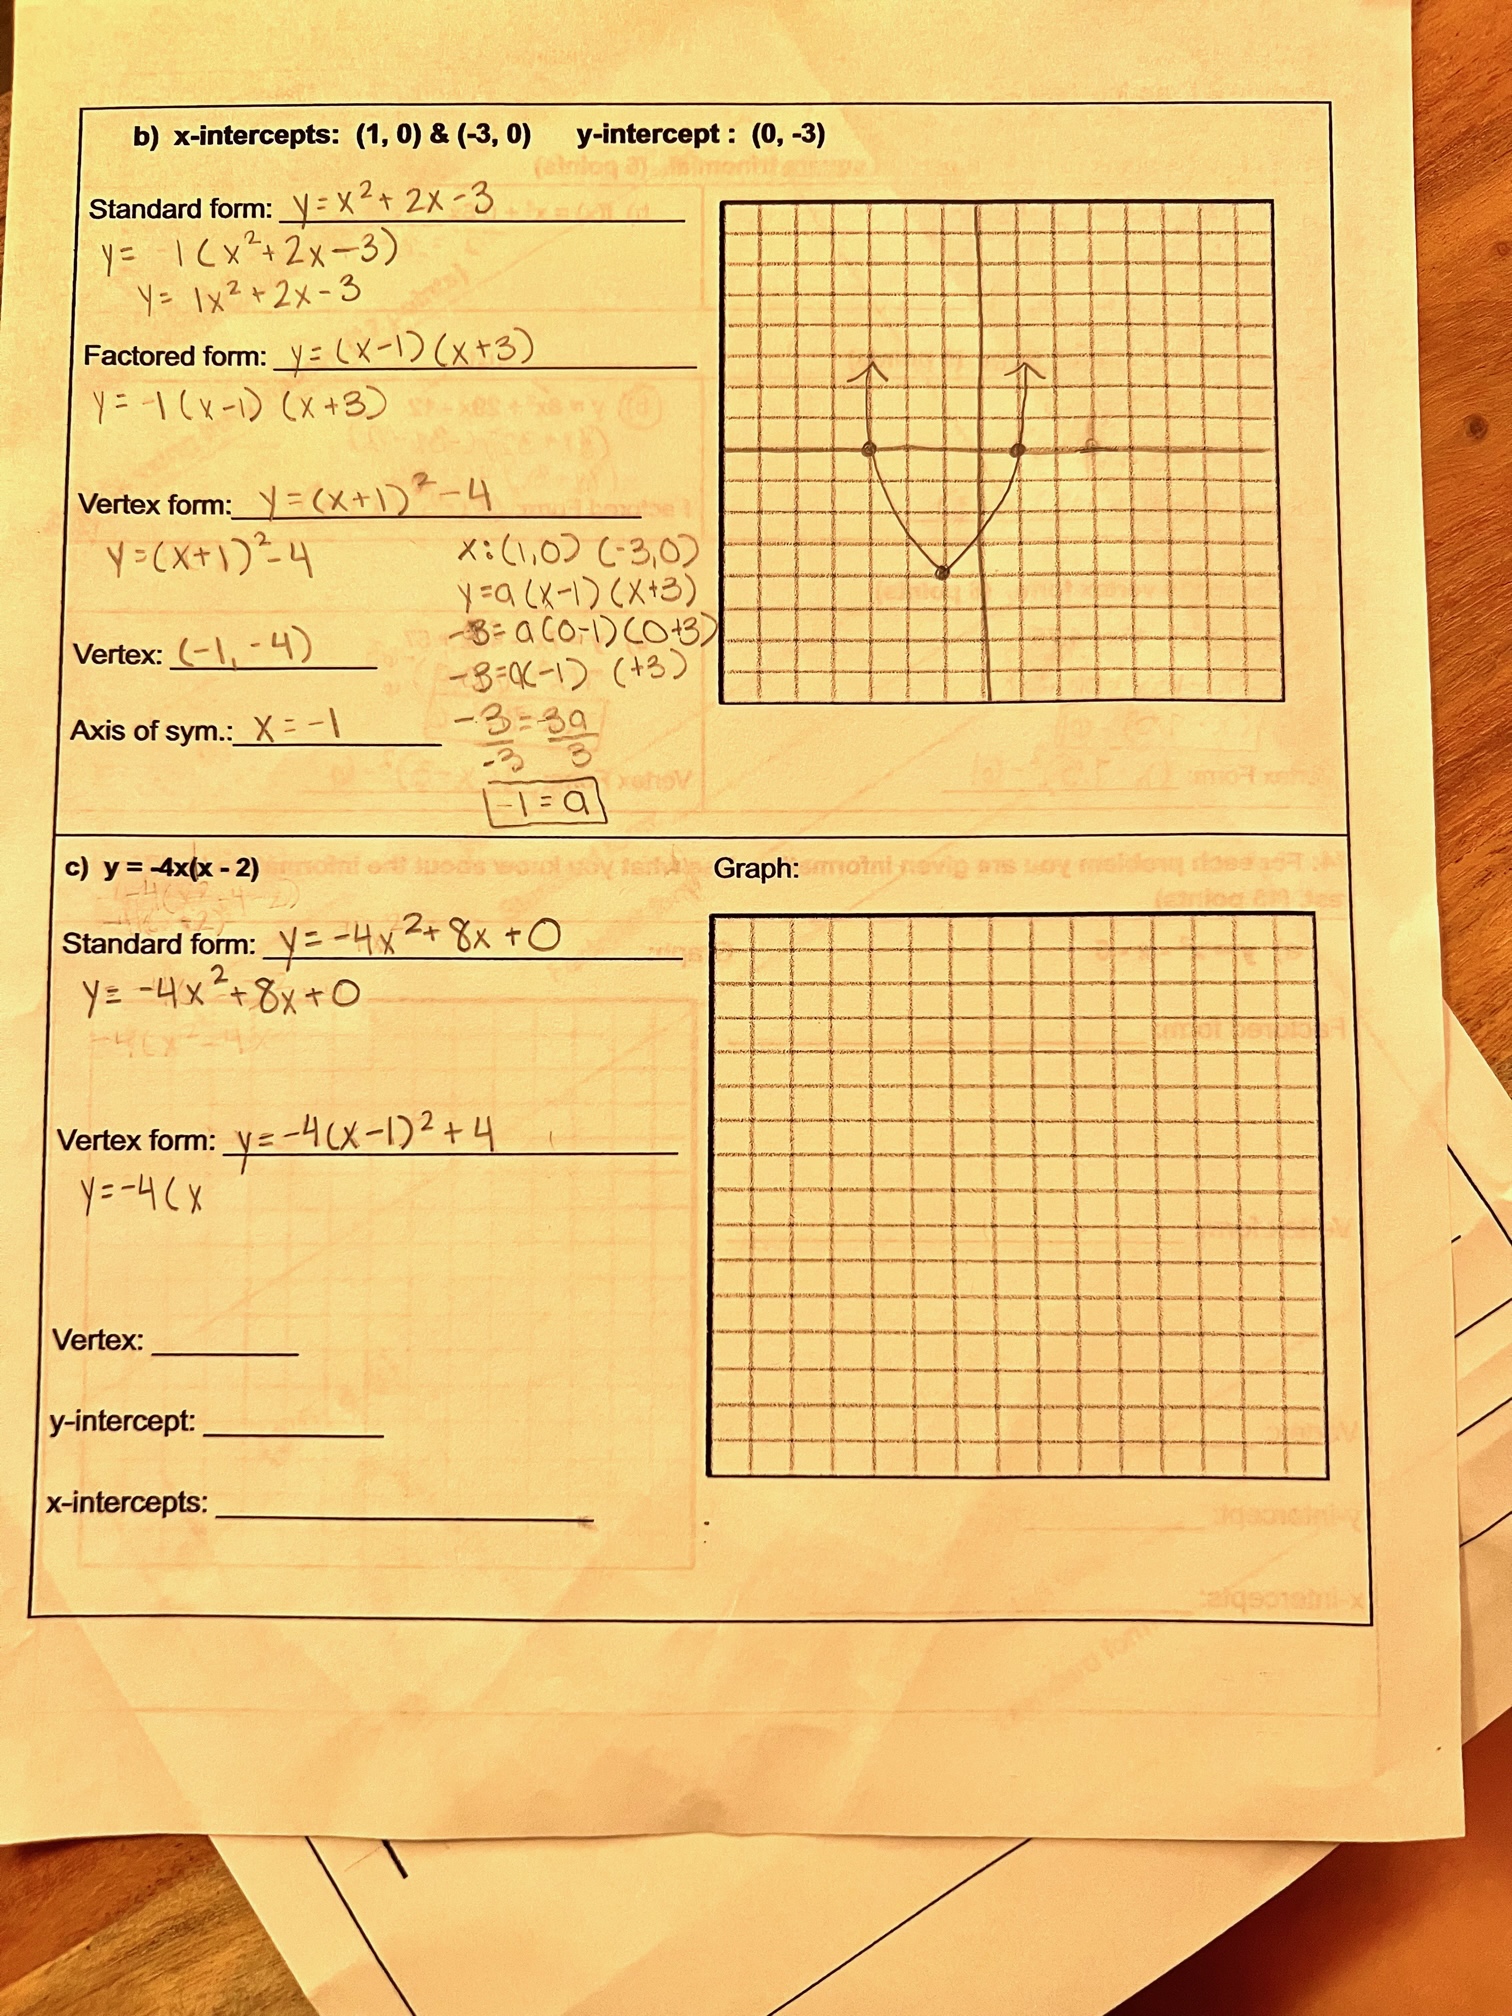 b) x-intercepts: (1, 0) & (-3, 0) y-intercept : (0, -3)
Standard form: y = x² + 2x - 3
y = 1(x² + 2x - 3)
y = 1x² + 2x - 3
Factored form: y = (x-1)(x+3)
y = -1(x-1)(x+3)
Vertex form: y = (x+1)² - 4
y = (x+1)² - 4
x: (1,0) (-3,0)
y = a(x-1)(x+3)
-3 = a(0-1)(0+3)
-3 = a(-1) (+3)
Vertex: (-1, -4)
Axis of sym.: x = -1
-3 = -3a
-3 3
-1 = a
c) y = -4x(x - 2)
Graph:
Standard form: y = -4x² + 8x + 0
y = -4x² + 8x + 0
Vertex form: y = -4(x-1)² + 4
y = -4(x
Vertex:
y-intercept:
x-intercepts: